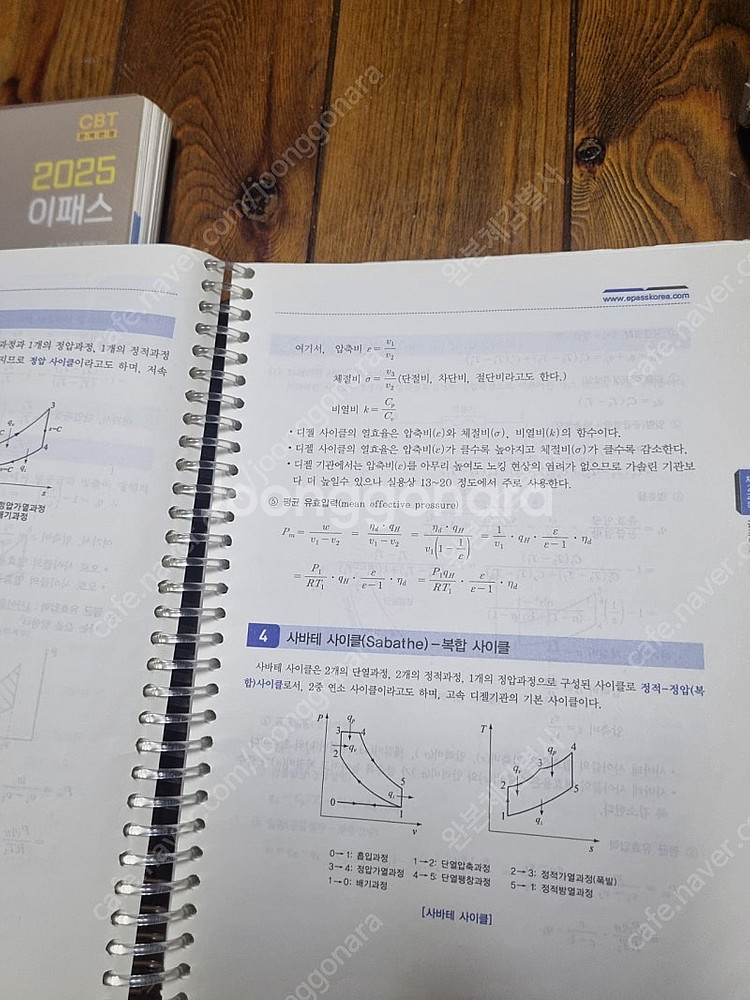 CBT
2025
이패스
과정과 1개의 정압과정, 1개의 정적과정
정압 사이클이라고도 하며, 저속
정압가열과정
배기과정
www.epasskorea.com
여기서, 압축비 ε = v₁/v₂
체절비 σ = v₃/v₂ (단절비, 차단비, 절단비라고도 한다.)
비열비 k = Cp/Cv
• 디젤 사이클의 열효율은 압축비(ε)와 체절비(σ), 비열비(k)의 함수이다.
• 디젤 사이클의 열효율은 압축비(ε)가 클수록 높아지고 체절비(σ)가 클수록 감소한다.
• 디젤 기관에서는 압축비(ε)를 아무리 높여도 노킹 현상의 염려가 없으므로 가솔린 기관보
다 더 높일수 있으나 실용상 13~20 정도에서 주로 사용한다.
⑤ 평균 유효압력(mean effective pressure)
Pm = w/(v₁−v₂) = ηd·qH/(v₁−v₂) = ηd·qH/(v₁(1−1/ε)) = 1/v₁ · qH · ε/(ε−1) · ηd
= P₁/RT₁ · qH · ε/(ε−1) · ηd = P₁qH/RT₁ · ε/(ε−1) · ηd
4 사바테 사이클(Sabathe)−복합 사이클
사바테 사이클은 2개의 단열과정, 2개의 정적과정, 1개의 정압과정으로 구성된 사이클로 정적−정압(복
합)사이클로서, 2중 연소 사이클이라고도 하며, 고속 디젤기관의 기본 사이클이다.
P qp 3 4 2 qv 5 qL 0 1 v
T qp 4 3 qv 2 5 1 qL s
0→1: 흡입과정 1→2: 단열압축과정 2→3: 정적가열과정(폭발)
3→4: 정압가열과정 4→5: 단열팽창과정 5→1: 정적방열과정
1→0: 배기과정
[사바테 사이클]
joonggonara
cafe.naver.com/joonggonara
완본체감별사